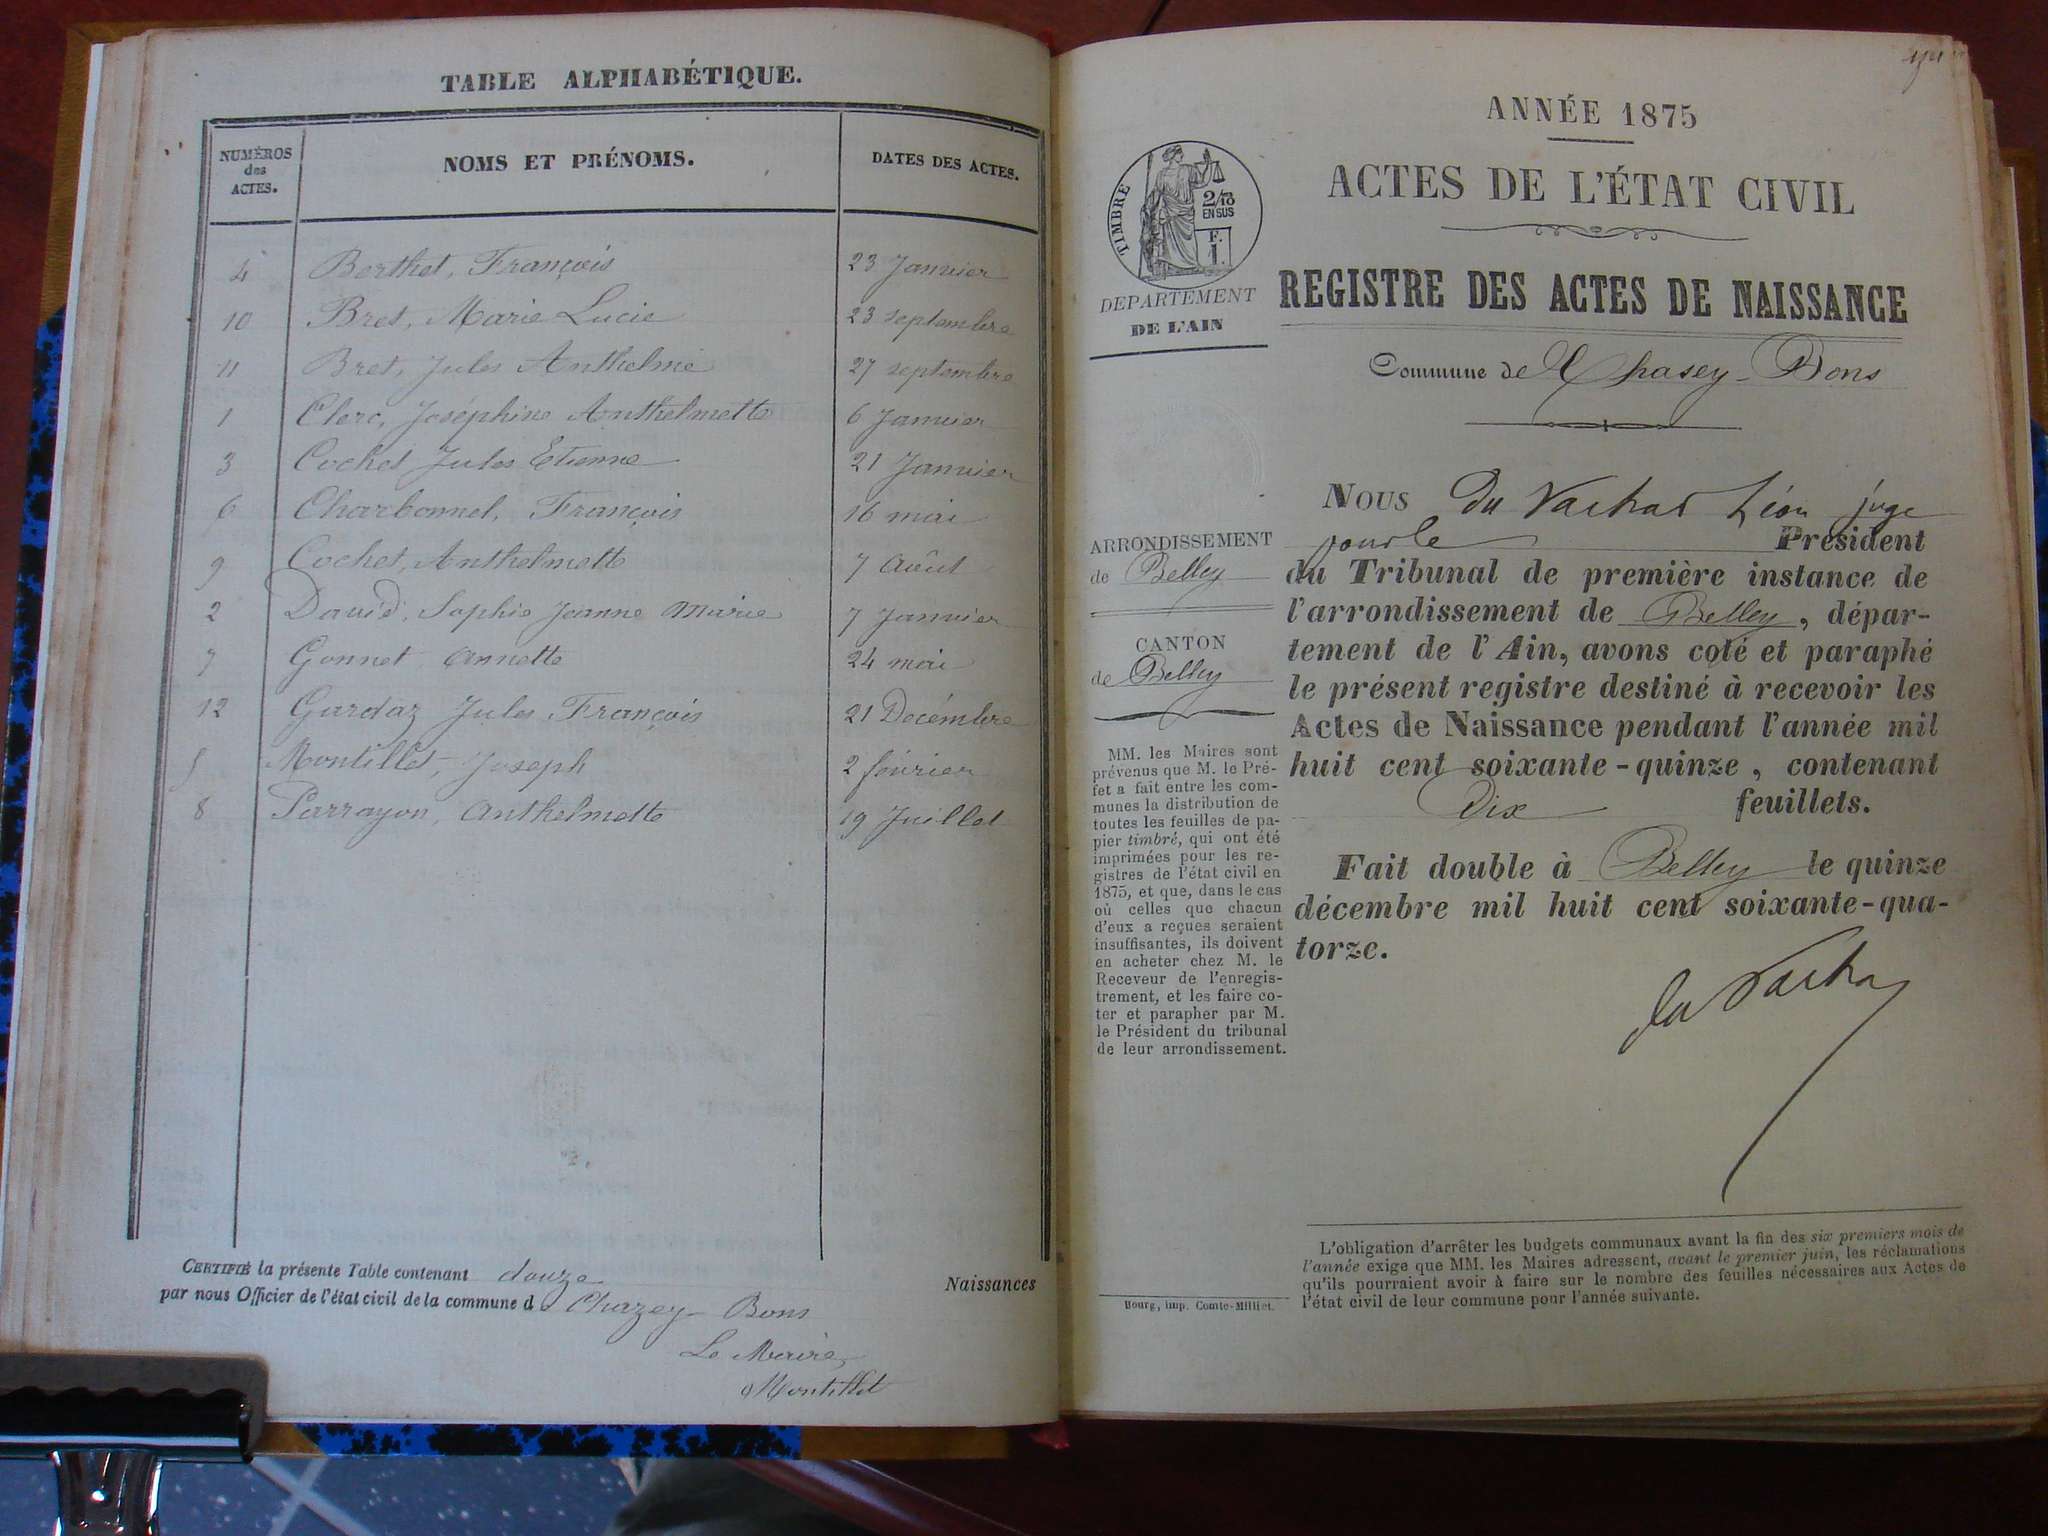 TABLE ALPHABÉTIQUE.
NUMÉROS des ACTES. NOMS ET PRÉNOMS. DATES DES ACTES.
4 Berthet, François 23 Janvier
10 Bret, Marie Lucie 23 septembre
11 Bret, Jules Anthelme 27 septembre
1 Clerc, Joséphine Anthelmette 6 Janvier
3 Cochet Jules Etienne 21 Janvier
6 Charbonnet, François 16 mai
9 Cochet, Anthelmette 7 Août
2 David, Sophie Jeanne Marie 7 Janvier
7 Gonnet Annette 24 mai
12 Gardaz Jules François 21 Decémbre
5 Montillet, Joseph 2 février
8 Parrayon, Anthelmette 19 Juillet
CERTIFIÉ la présente Table contenant douze Naissances
par nous Officier de l'état civil de la commune d Chazey-Bons
Le Maire,
Montillet
ANNÉE 1875
ACTES DE L'ÉTAT CIVIL
TIMBRE
2/10 EN SUS
F. 1.
DÉPARTEMENT
DE L'AIN
REGISTRE DES ACTES DE NAISSANCE
Commune de Chasey-Bons
ARRONDISSEMENT
de Belley
CANTON
de Belley
MM. les Maires sont
prévenus que M. le Pré-
fet a fait entre les com-
munes la distribution de
toutes les feuilles de pa-
pier timbré, qui ont été
imprimées pour les re-
gistres de l'état civil en
1875, et que, dans le cas
où celles que chacun
d'eux a reçues seraient
insuffisantes, ils doivent
en acheter chez M. le
Receveur de l'enregis-
trement, et les faire co-
ter et parapher par M.
le Président du tribunal
de leur arrondissement.
Nous Du Vachat Léon juge
pour le Président
du Tribunal de première instance de
l'arrondissement de Belley, dépar-
tement de l'Ain, avons coté et paraphé
le présent registre destiné à recevoir les
Actes de Naissance pendant l'année mil
huit cent soixante-quinze, contenant
Dix feuillets.
Fait double à Belley le quinze
décembre mil huit cent soixante-qua-
torze.
du Vachat
L'obligation d'arrêter les budgets communaux avant la fin des six premiers mois de
l'année exige que MM. les Maires adressent, avant le premier juin, les réclamations
qu'ils pourraient avoir à faire sur le nombre des feuilles nécessaires aux Actes de
l'état civil de leur commune pour l'année suivante.
Bourg, imp. Comte-Milliet.